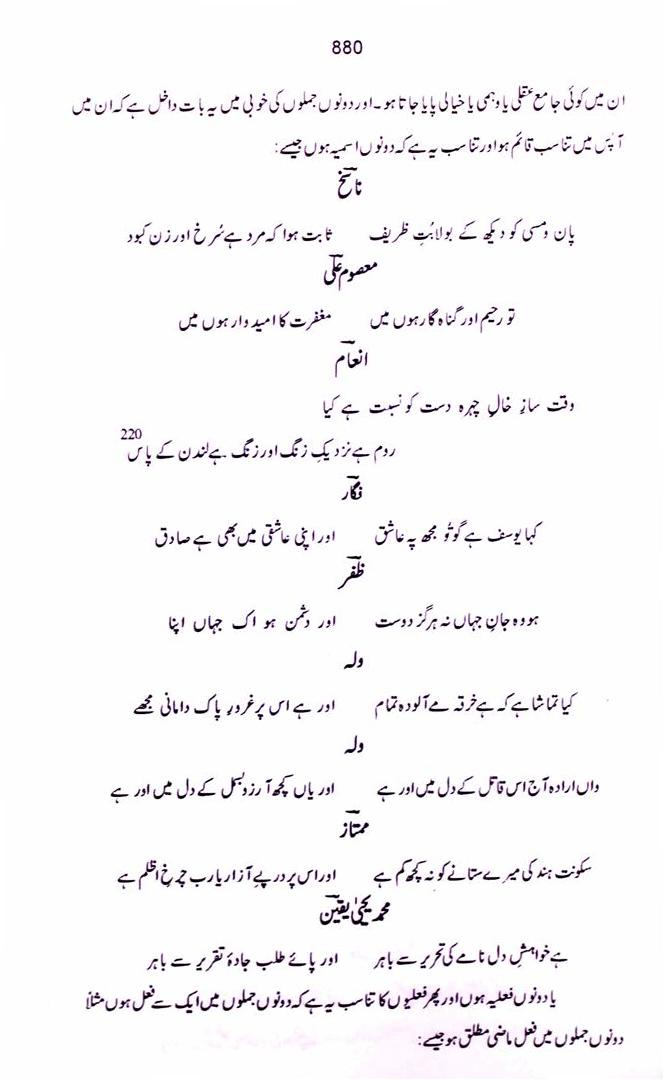 880
ان میں کوئی جامع عقلی یا وہمی یا خیالی پایا جاتا ہو۔ اور دونوں جملوں کی خوبی میں یہ بات داخل ہے کہ ان میں
آپس میں تناسب قائم ہو اور تناسب یہ ہے کہ دونوں اسمیہ ہوں جیسے:
ناسخ
پان ومسی کو دیکھ کے بولا بُتِ ظریف ثابت ہوا کہ مرد ہے سُرخ اور زن کبود
معصوم علی
تو رحیم اور گناہ گار ہوں میں مغفرت کا امید وار ہوں میں
انعام
وقت سازِ خالِ چہرہ دست کو نسبت ہے کیا
روم ہے نزدیکِ زنگ اور زنگ ہے لندن کے پاس220
نگار
کہا یوسف ہے گو تُو مجھ پہ عاشق اور اپنی عاشقی میں بھی ہے صادق
ظفر
ہو وہ جانِ جہاں نہ ہرگز دوست اور دشمن ہو اک جہاں اپنا
ولہ
کیا تماشا ہے کہ ہے خرقہ مے آلودہ تمام اور ہے اس پر غرورِ پاک دامانی مجھے
ولہ
واں ارادہ آج اس قاتل کے دل میں اور ہے اور یاں کچھ آرزو بسمل کے دل میں اور ہے
ممتاز
سکونت ہند کی میرے ستانے کو نہ کچھ کم ہے اور اس پر درپےِ آزار یارب چرخِ اظلم ہے
محمد یحییٰ یقین
ہے خواہشِ دل نامے کی تحریر سے باہر اور پائے طلب جادۂ تقریر سے باہر
یا دونوں فعلیہ ہوں اور پھر فعلیوں کا تناسب یہ ہے کہ دونوں جملوں میں ایک سے فعل ہوں مثلاً
دونوں جملوں میں فعل ماضی مطلق ہو جیسے: